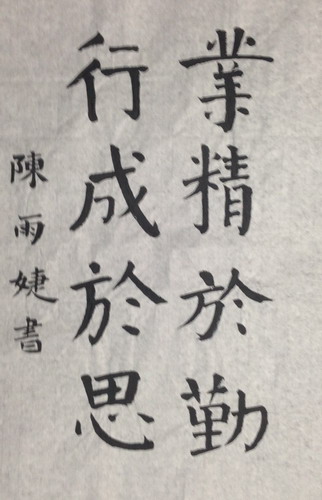 業精於勤
行成於思
陳雨婕書